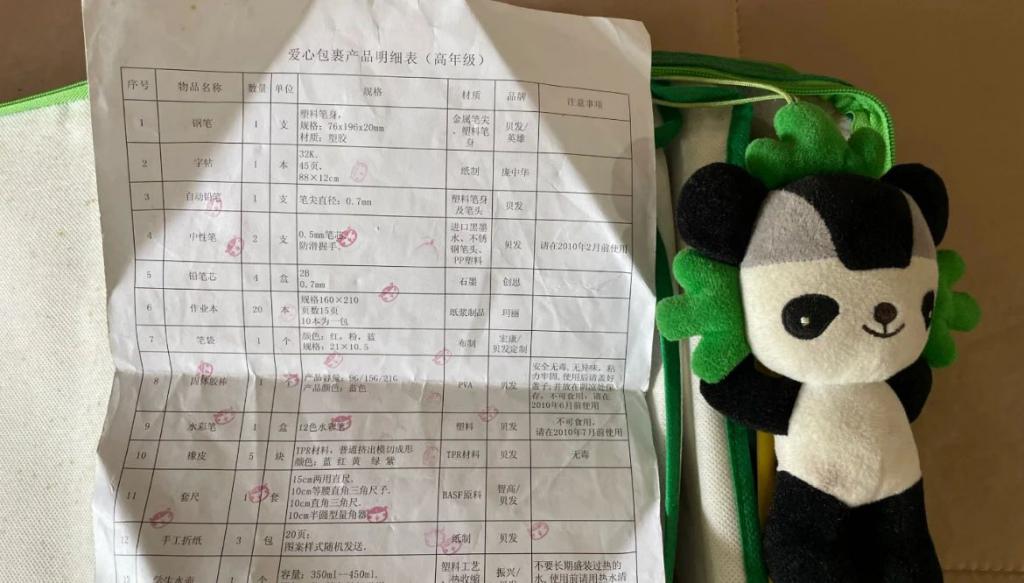 爱心包裹产品明细表（高年级）
序号 物品名称 数量 单位 规格 材质 品牌 注意事项
1 钢笔 1 支 塑料笔身， 规格：76x196x20mm 材质：塑胶 金属笔尖、塑料笔身 贝发/英雄
2 字帖 1 本 32K. 45页. 88×12cm 纸制 庞中华
3 自动铅笔 1 支 笔尖直径：0.7mm 塑料笔身及笔头 贝发
4 中性笔 2 支 0.5mm笔芯. 防滑握手. 进口黑墨水、不锈钢笔头、PP塑料 贝发 请在2010年2月前使用
5 铅笔芯 4 盒 2B 0.7mm 石墨 创恩
6 作业本 20 本 规格160×210 页数15页 10本为一包 纸浆制品 玛丽
7 笔袋 1 个 颜色：红，粉，蓝 规格：21×10.5 布制 宏康/贝发定制
8 固体胶棒 1 产品容量：9G/15G/21G 产品颜色：蓝色 PVA 贝发 安全无毒.无异味，粘力牢固.使用后请盖好盖子;并放在阴凉处保存，不可食用，请在2010年6月前使用
9 水彩笔 1 盒 12色水彩笔 塑料 贝发 不可食用， 请在2010年7月前使用
10 橡皮 5 块 TPR材料，普通挤出模切成形 颜色：蓝 红 黄 绿 紫 TPR材料 贝发 无毒
11 套尺 1 套 15cm两用直尺. 10cm等腰直角三角尺子. 10cm直角三角尺. 10cm半圆型量角器 BASF原料 智高/贝发
12 手工折纸 3 包 20页； 图案样式随机发送. 纸制 贝发
13 学生水壶 1 个 容量：350ml--450ml. 塑料工艺 热收缩 振兴/ 不要长期盛装过热的水，使用前请用热水清